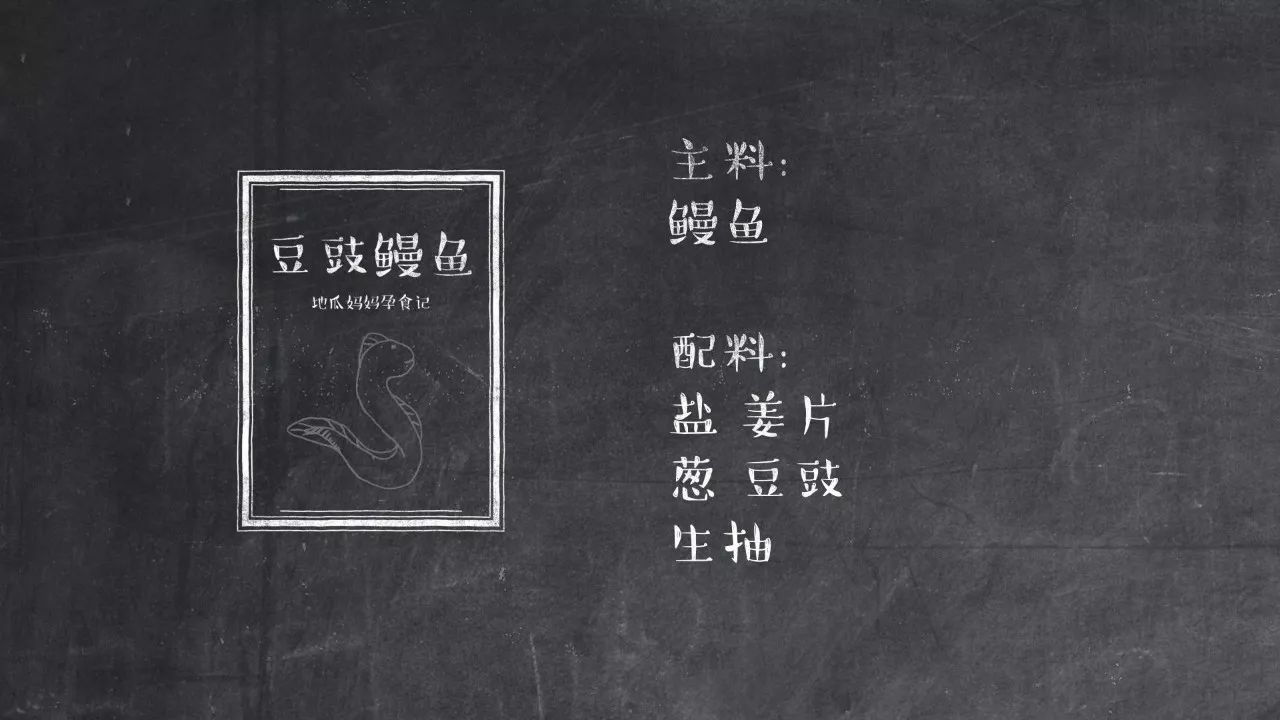 豆豉鳗鱼
地瓜妈妈孕食记
主料:
鳗鱼
配料:
盐 姜片
葱 豆豉
生抽